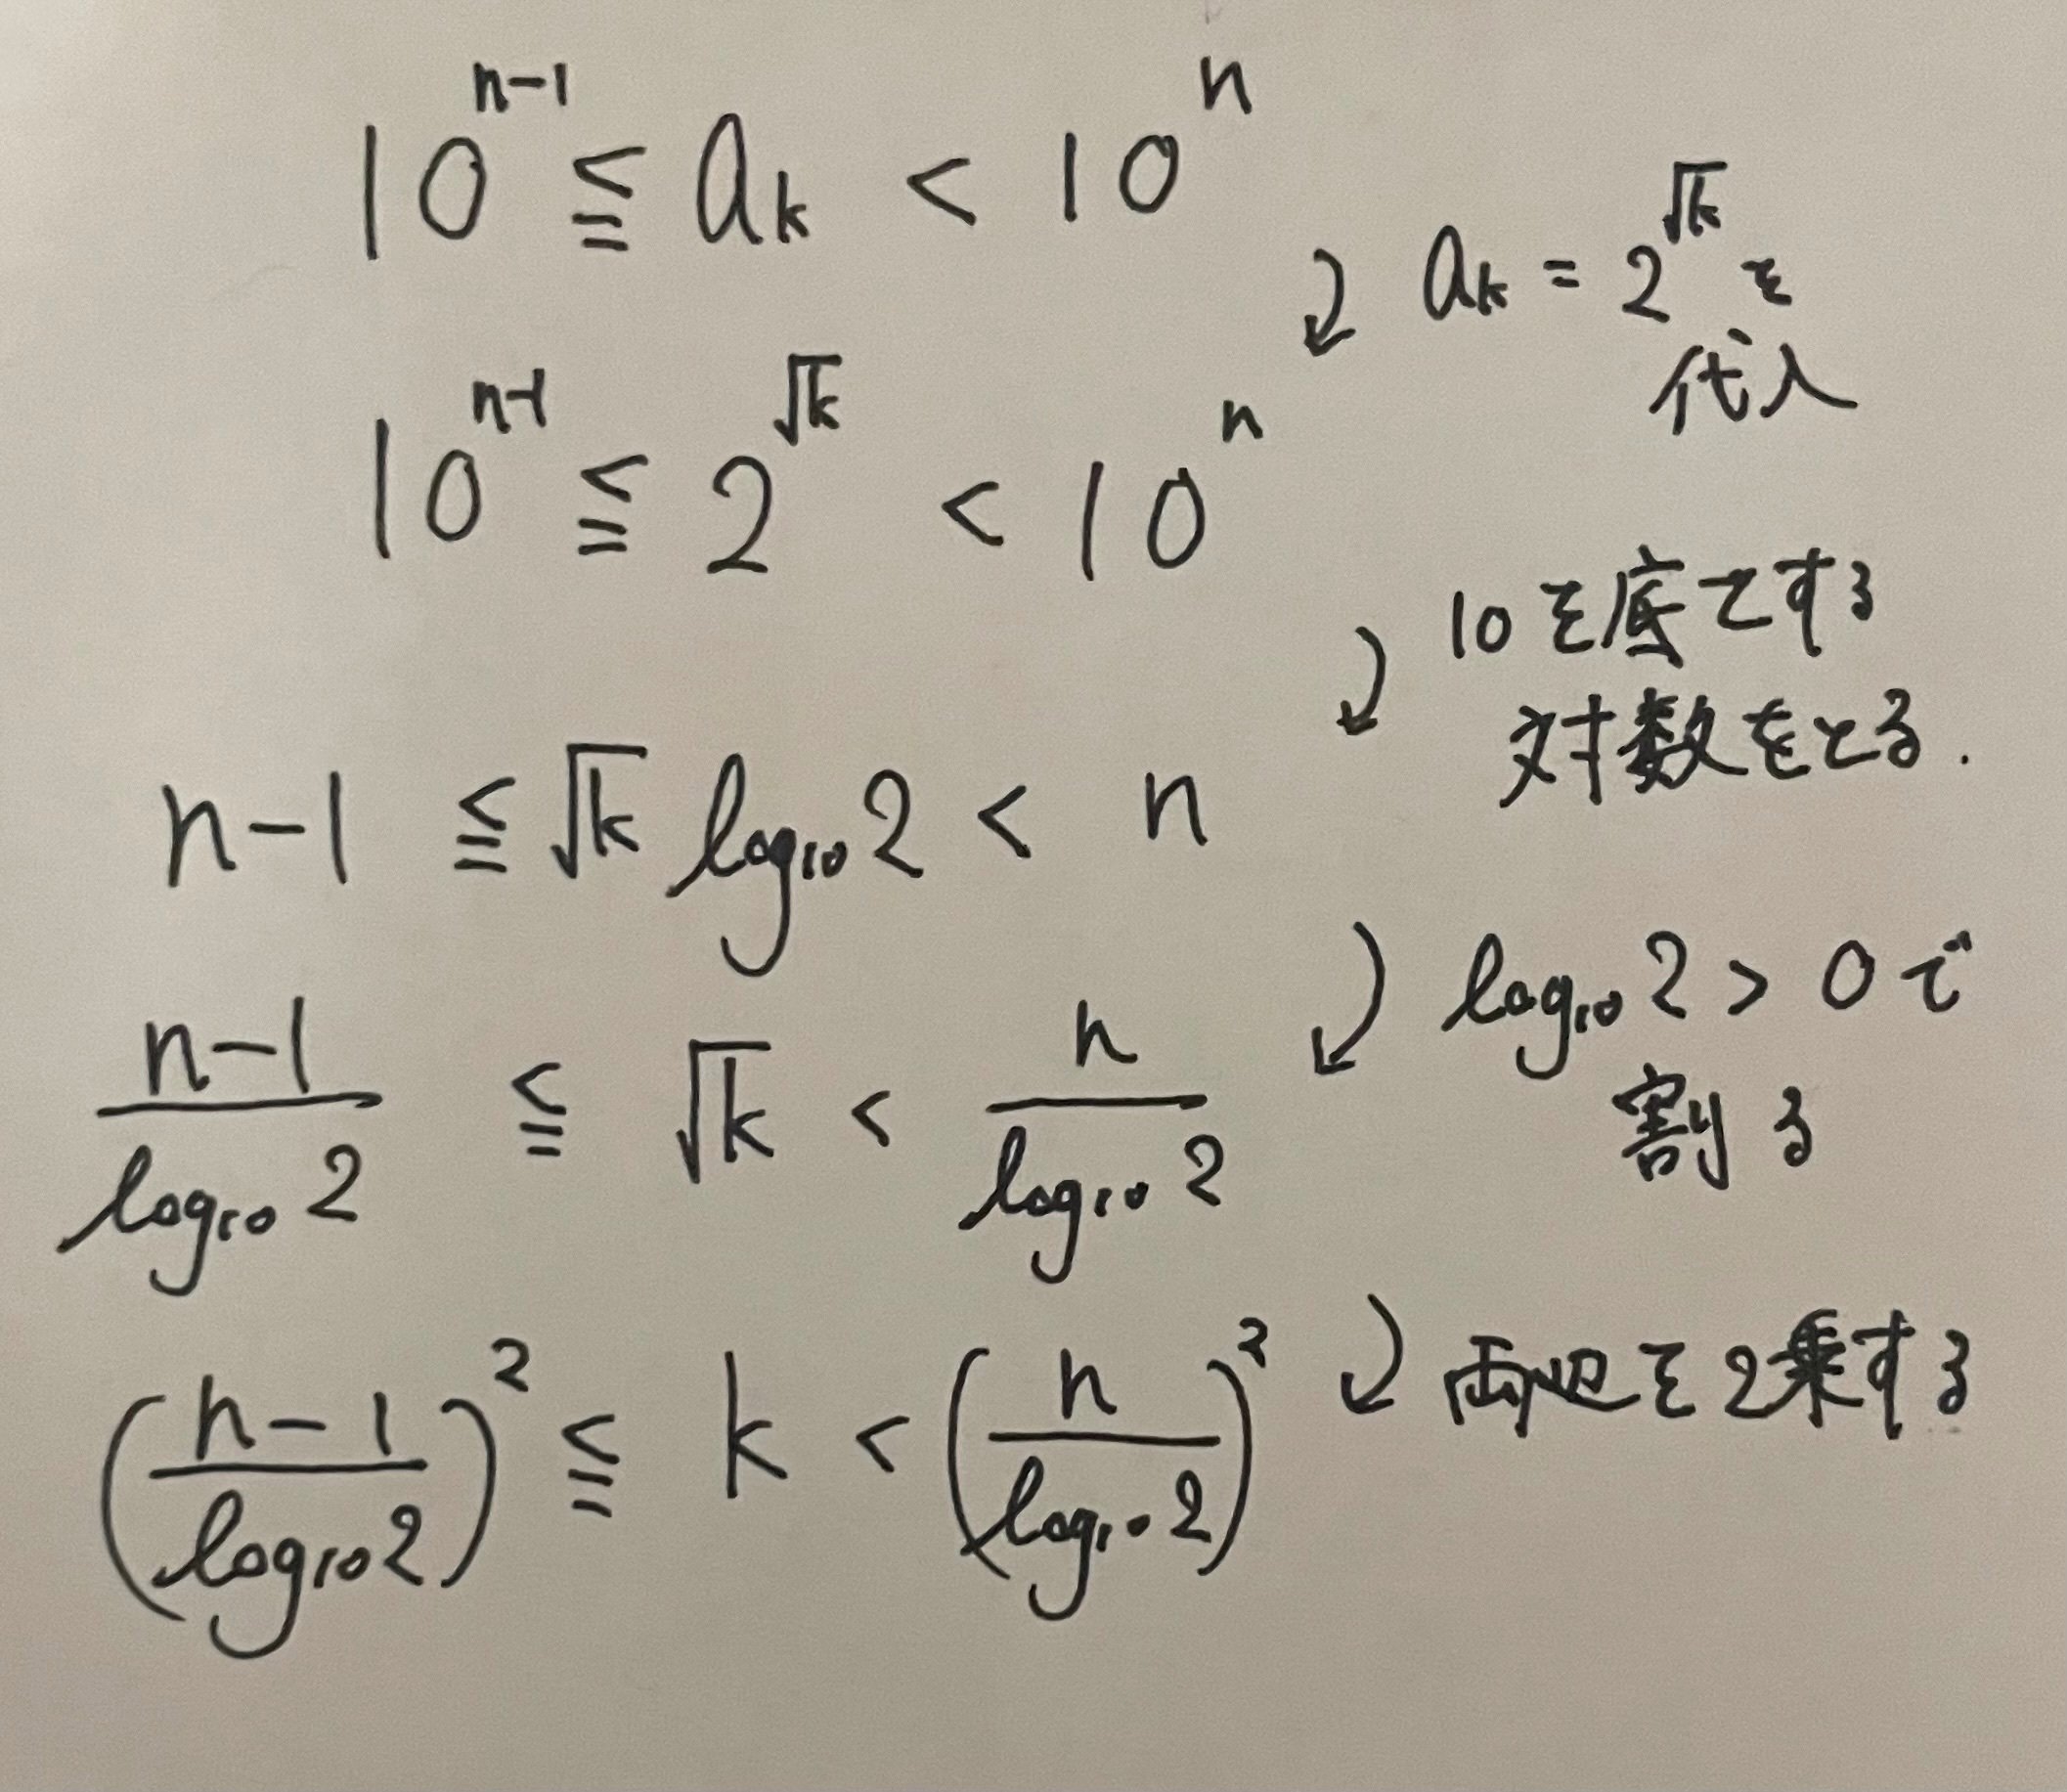 10^{n-1} ≦ a_k < 10^n
a_k = 2^{√k} を
代入
10^{n-1} ≦ 2^{√k} < 10^n
10を底とする
対数をとる.
n-1 ≦ √k log_{10} 2 < n
log_{10} 2 > 0 で
割る
\frac{n-1}{log_{10} 2} ≦ √k < \frac{n}{log_{10} 2}
両辺を2乗する
(\frac{n-1}{log_{10} 2})^2 ≦ k < (\frac{n}{log_{10} 2})^2